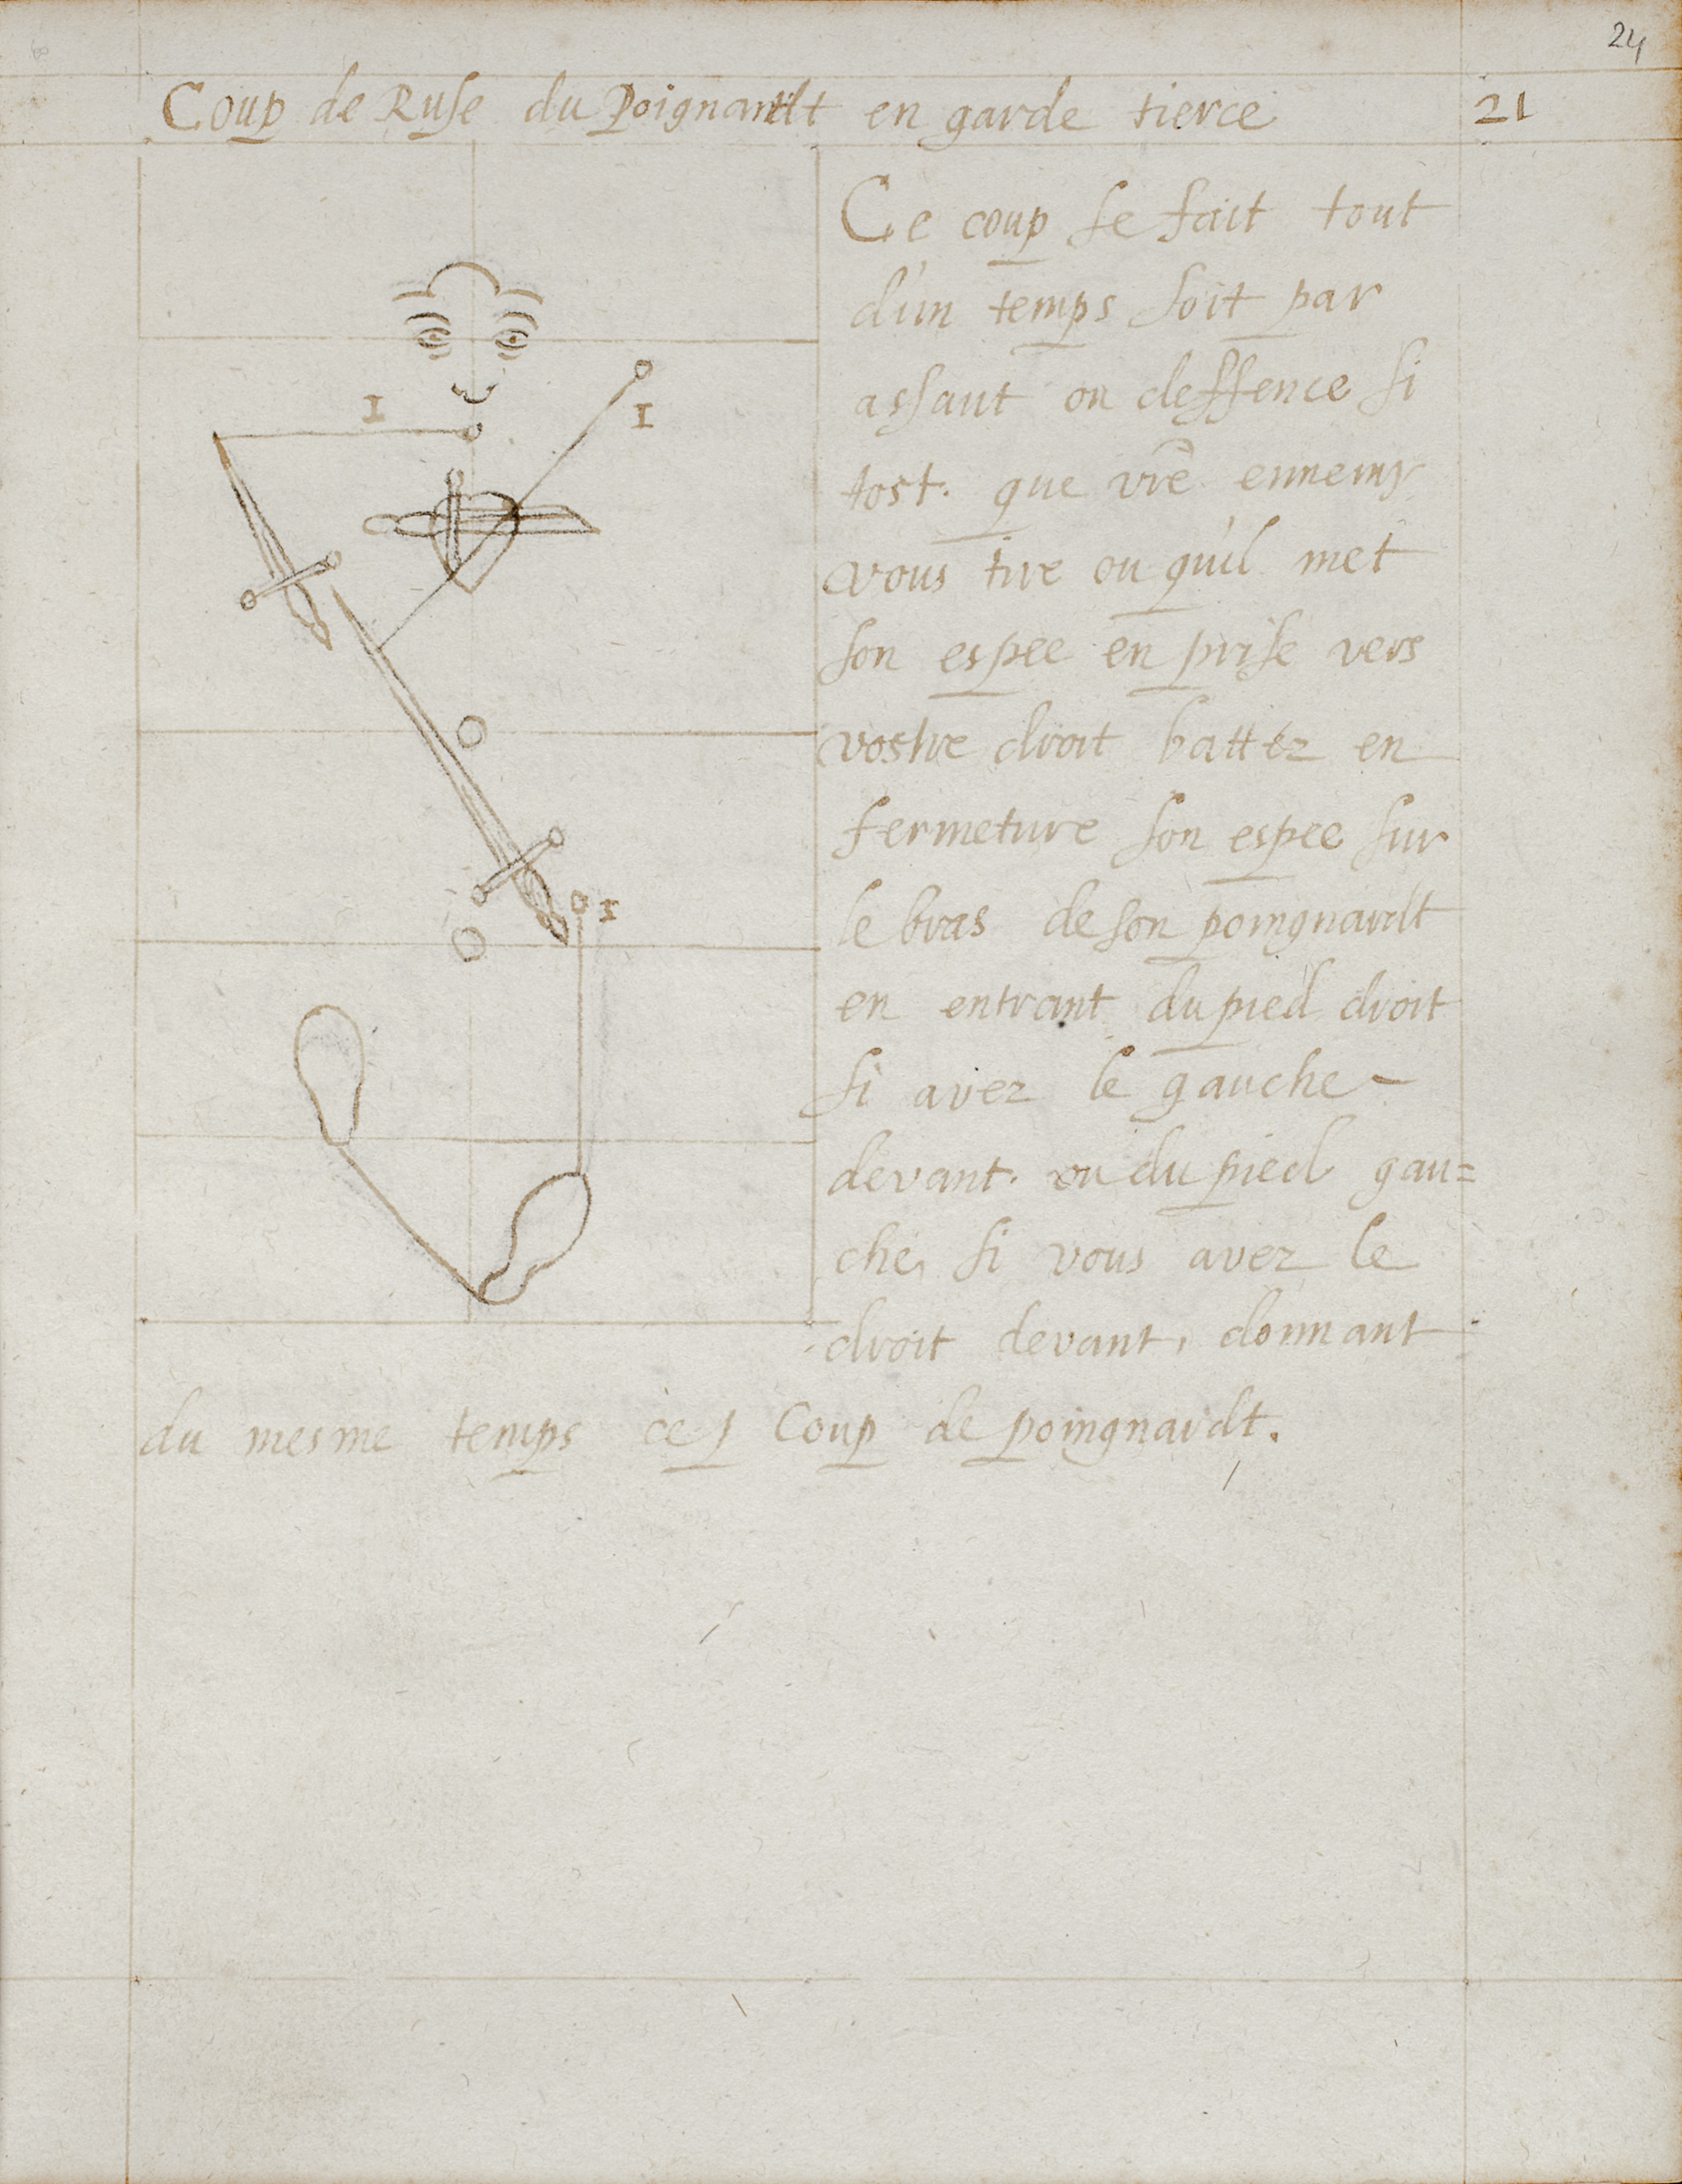 24
Coup de Ruse du Poignardt en garde tierce 21
Ce coup se fait tout
d'un temps soit par
assaut ou deffence si
tost. que vrē ennemy
vous tire ou qu'il met
son espee en prise vers
vostre droit battez en
fermeture son espee sur
le bras de son poingnardt
en entrant du pied droit
si avez le gauche
devant. ou du pied gau=
che, si vous avez le
droit devant, donnant
du mesme temps ce Coup de poingnardt.
I
I
I